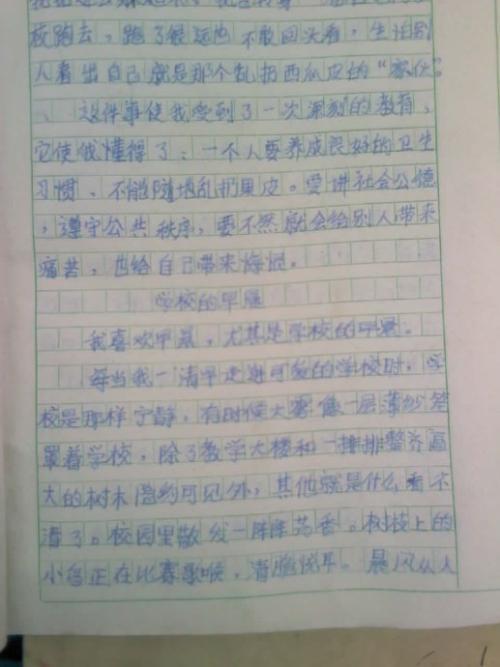 校跑去，跑了很远也不敢回头看，生怕别
人看出自己就是那个乱扔西瓜皮的“家伙”
、这件事使我受到了一次深刻的教育，
它使我懂得了：一个人要养成良好的卫生
习惯、不能随地乱扔果皮。要讲社会公德
，遵守公共秩序，要不然就会给别人带来
痛苦，也给自己带来悔恨。
学校的早晨
我喜欢早晨，尤其是学校的早晨。
每当我一清早走进可爱的学校时，学
校是那样宁静，有时候大雾像一层薄纱笼
罩着学校，除了教学大楼和一排排整齐高
大的树木隐约可见外，其他就是什么看不
清了。校园里散发一阵阵芳香。树枝上的
小鸟正在比赛歌喉，清脆悦耳。晨风从人